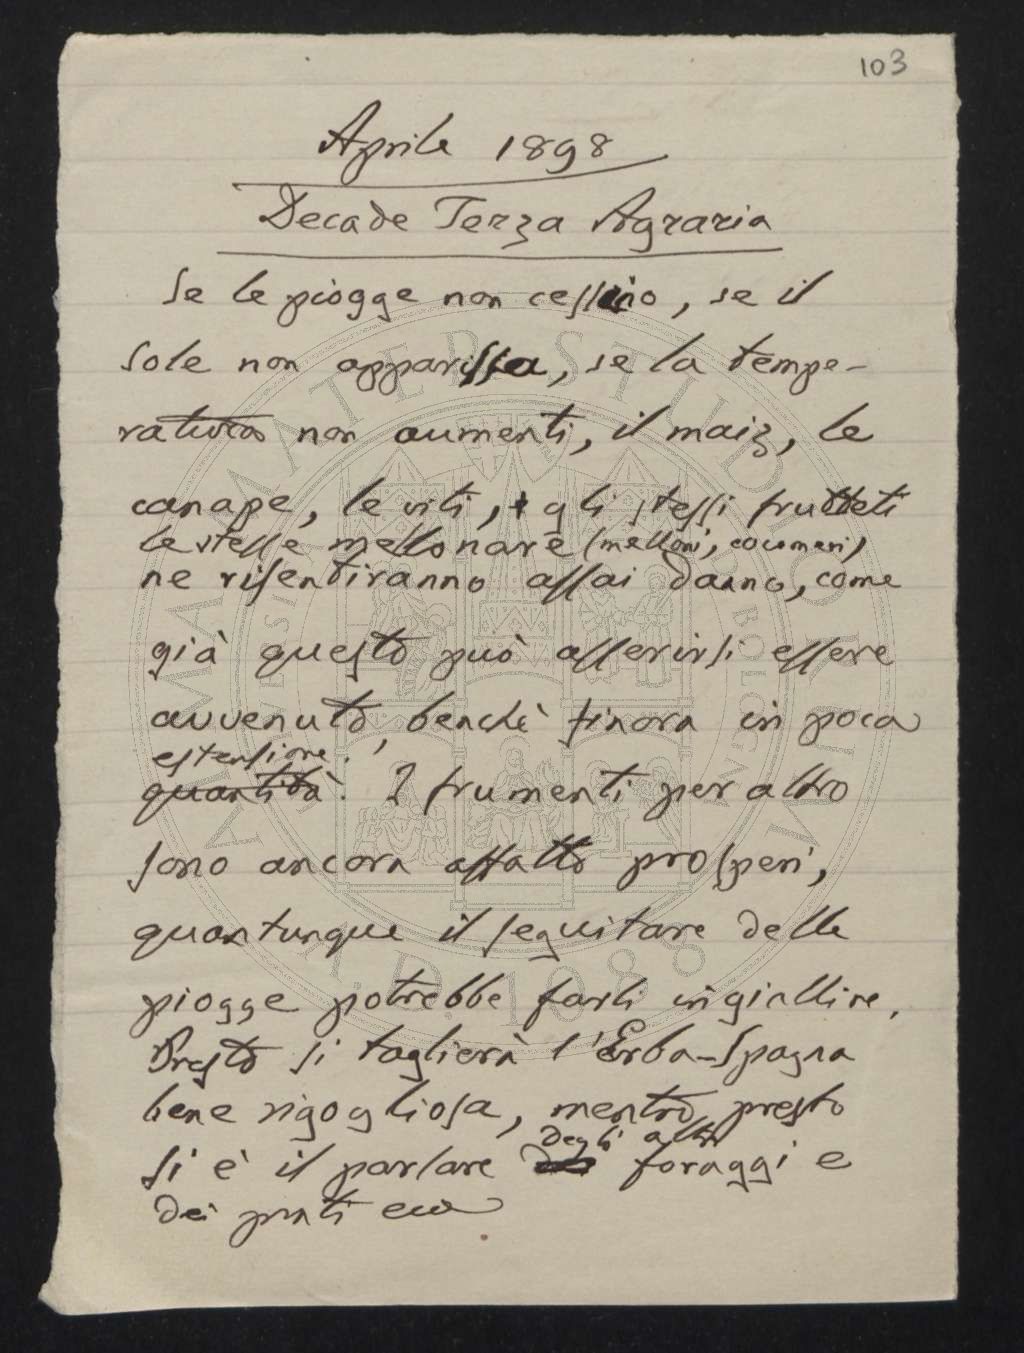 103
Aprile 1898
Decade Terza Agraria
Se le piogge non cessino, se il
sole non apparissa, se la tempe-
ratura non aumenti, il maiz, le
canape, le viti, gli stessi frutteti
le stesse mellonare (melloni, cocomeri)
ne risentiranno assai danno, come
già questo può asserirsi essere
avvenuto, benchè finora in poca
estensione.
quantità. I frumenti per altro
sono ancora affatto prosperi,
quantunque il seguitare delle
piogge potrebbe farli ingiallire.
Presto si taglierà l'Erba-Spagna
bene rigogliosa, mentre presto
degli altri
si è il parlare foraggi e
dei prati ecc
ALMA MATER STUDIORUM
A.D. 1088